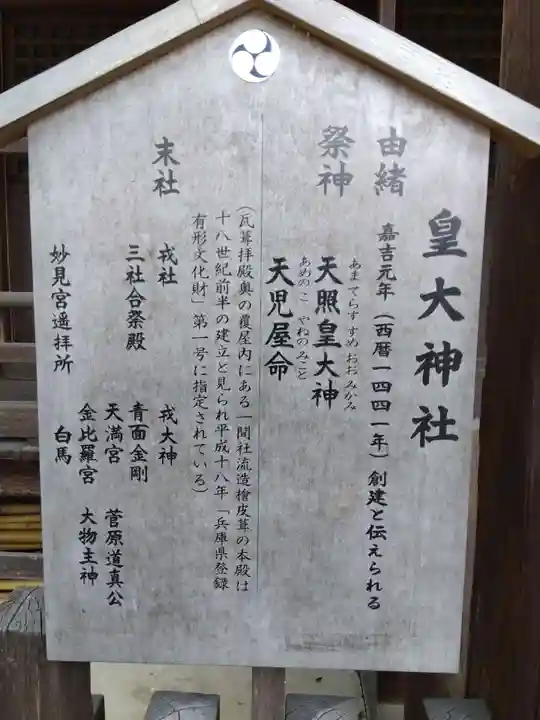 皇大神社
由緒 嘉吉元年(西暦一四四一年)創建と伝えられる
祭神 天照皇大神
あまてらすすめおおみかみ
天児屋命
あめのこやねのみこと
(瓦葺拝殿奥の覆屋内にある一間社流造檜皮葺の本殿は
十八世紀前半の建立と見られ平成十八年「兵庫県登録
有形文化財」第一号に指定されている)
末社 戎社 戎大神
三社合祭殿 青面金剛
天満宮 菅原道真公
金比羅宮 大物主神
妙見宮遥拝所 白馬